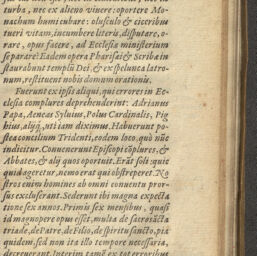 turba, nec ex alieno vivere: oportere Mo-
nachum humi cubare: olusculo & ciceribus
tueri vitam, incumbere literis, disputare, o-
rare, opus facere, ad Ecclesiæ ministerium
se parare. Eadem opera Pharisæi & Scribæ in
staurabunt templũ Dei, & ex spelunca latro-
num, restituent nobis domum orationis.
Fuerunt ex ipsis aliqui, qui errores in Ec-
clesia complures deprehenderint: Adrianus
Papa, Aeneas Sylvius, Polus Cardinalis, Pig
hius, alijq́, uti iam diximus. Habuerunt po-
stea concilium Tridenti, eodem loco, quò nũc
indicitur. Convenerunt Episcopi cõplures, &
Abbates, & alij quos oportuit. Erãt soli: quic
quid ageretur, nemo erat qui obstreperet. No
stros enim homines ab omni conventu pror-
sus excluserant. Sederunt ibi magna expecta
tione sex annos. Primis sex mensibus, quasi
id magnopere opus esset, multa de sacrosãcta
triade, de Patre, de Filio, de spiritu sancto, pia
quidem, sed non ita illo tempore necessaria,
decreverunt. Interim tamẽ ex tot erroribus